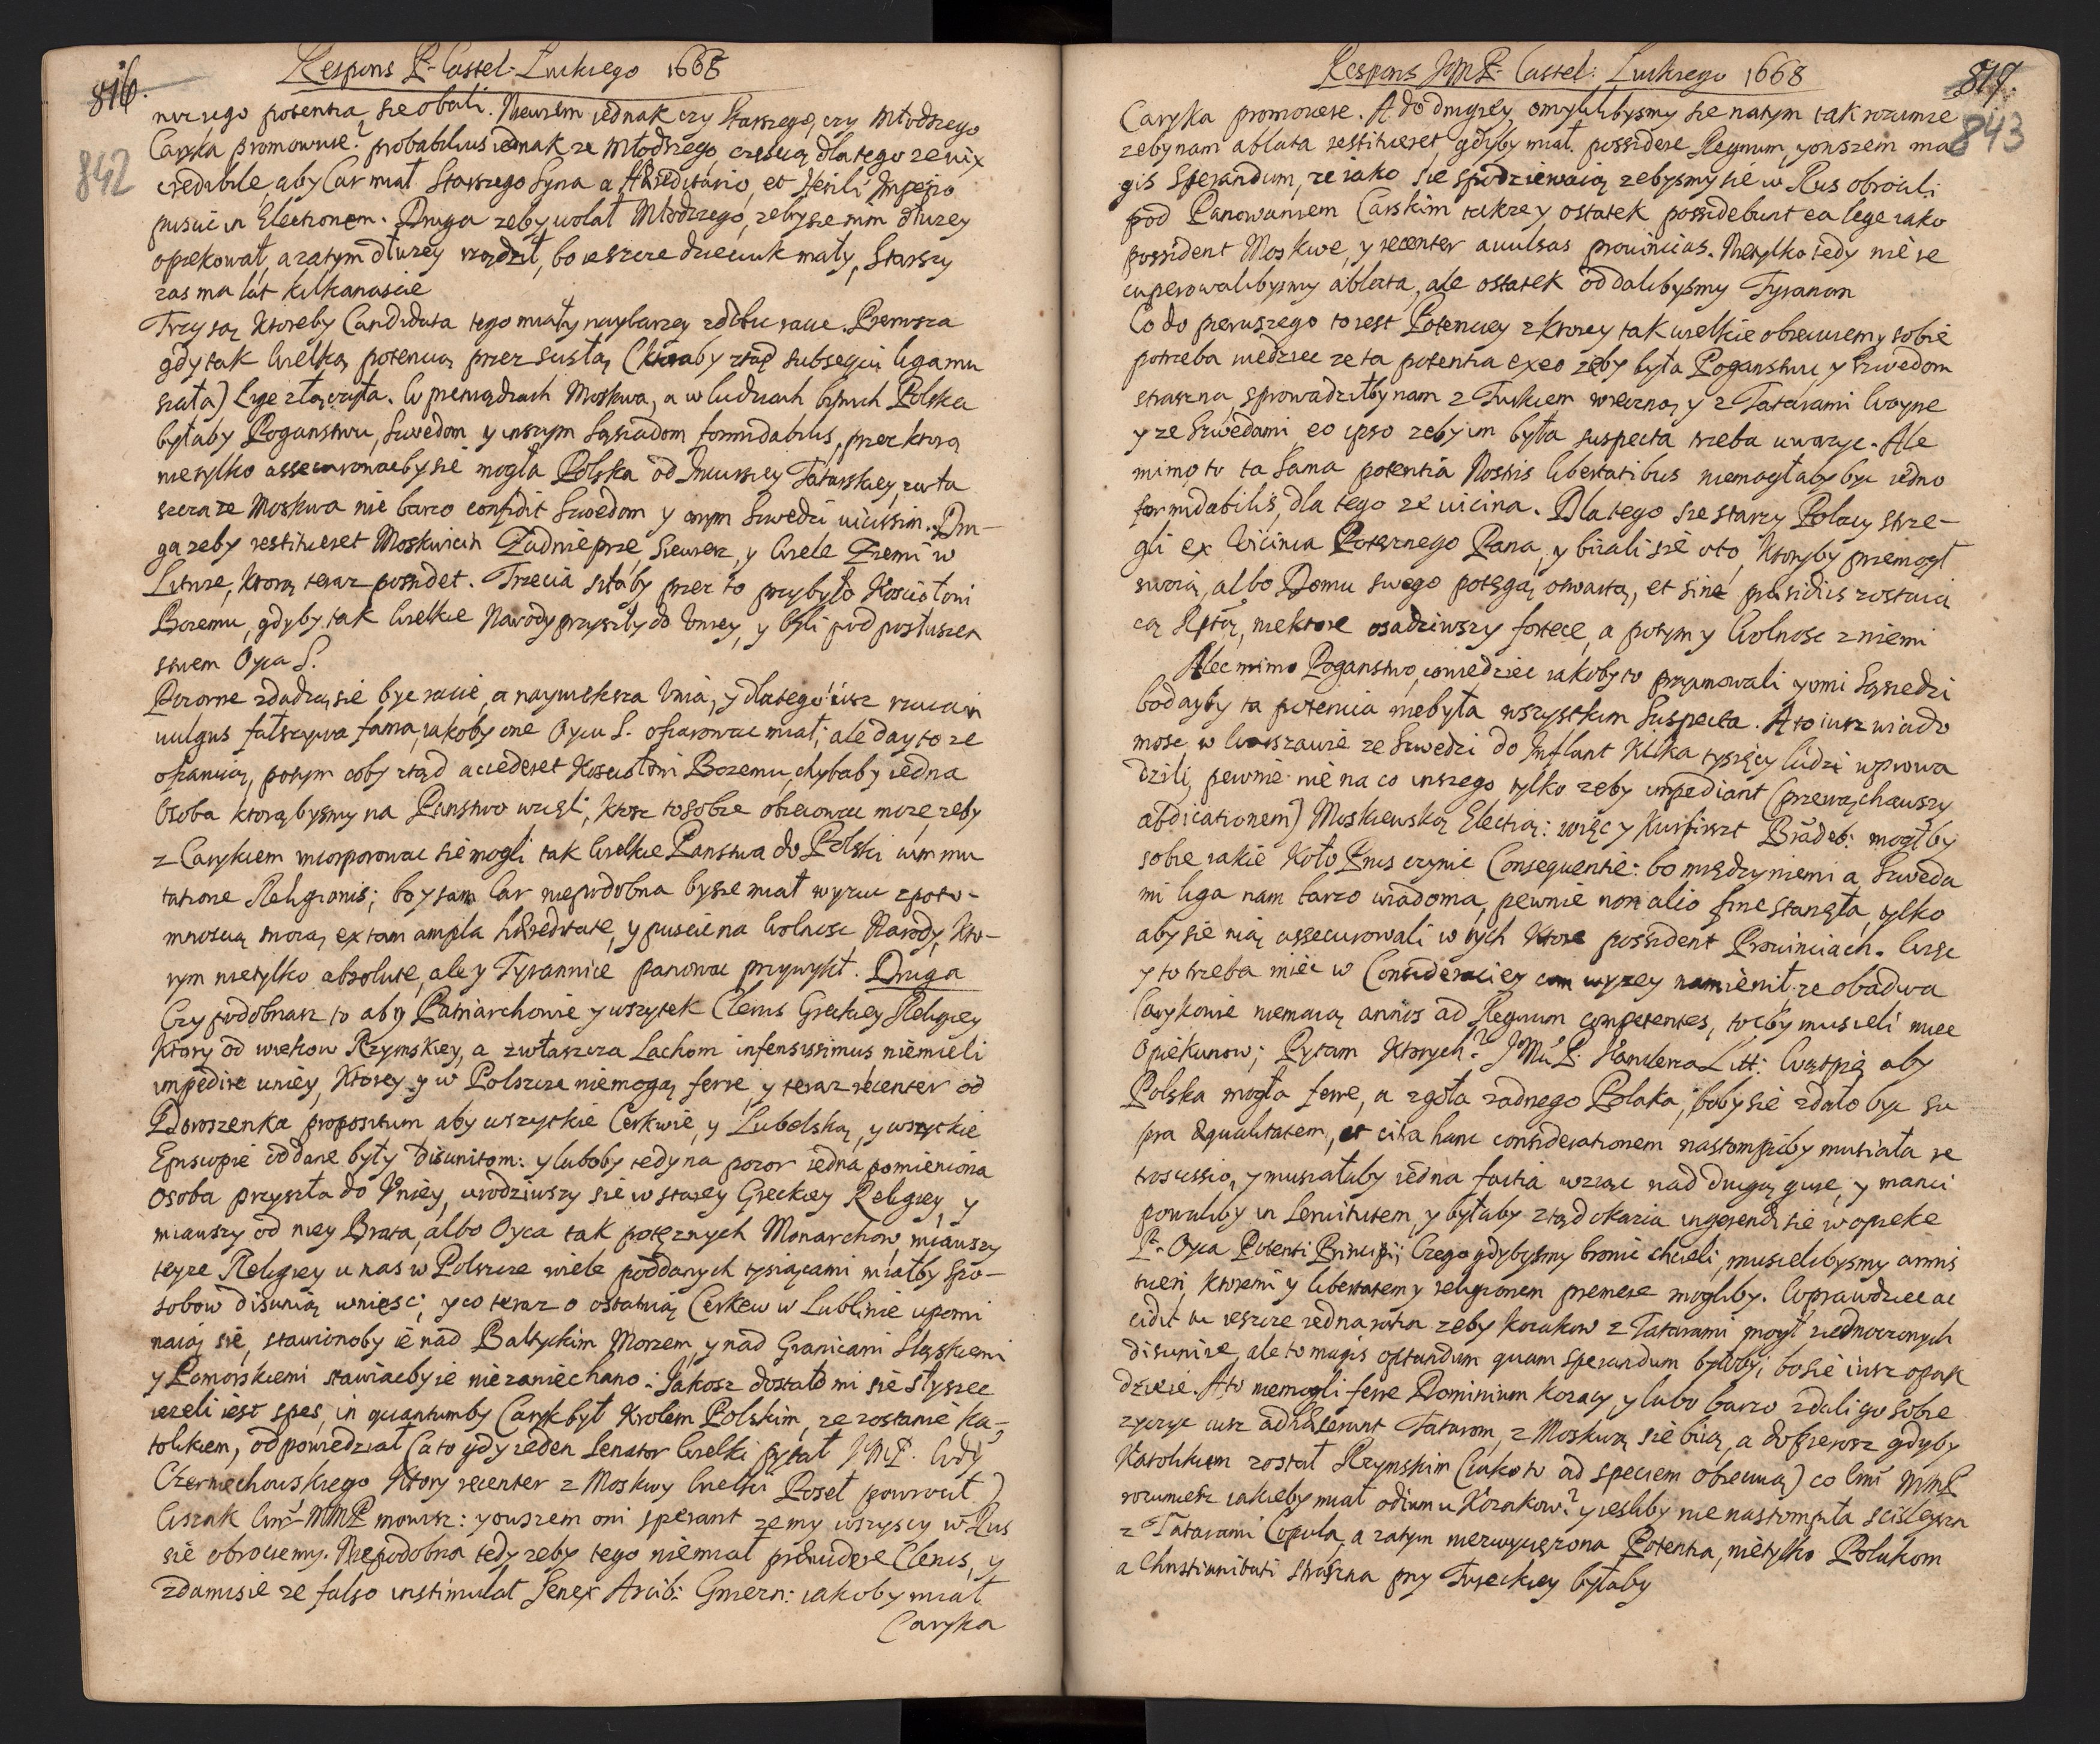 816.
Respons P. Castel: Luckiego 1668
842
niczego potentia sie obali. Niewiem iednak czy Starszego, czy Młodszego
Caryka promowuie? probabilius iednak ze Młodszego, częscią dlatego ze vix
credibile, aby Car miał Starszego Syna a Hæreditario, et Herili Imperio
puscic in Electionem. Druga zeby wolał Młodszego, zeby sie nim dłuzey
opiekował, a zatym dłuzey rządził, bo ieszcze dzieciuk mały, Starszy
zas ma lat kilkanascie
Trzy są ktoreby Candidata tego miały naybarzey zdobic racie. Pierwsza
gdy tak wielką potencią przez suscłą (ktoraby ztąd subsequi liga mu
siała) Lige złączyła. W pieniądzach Moskwa, a w ludziach bitnych Polska
byłaby Poganstwu, Szwedom y inszym Sąsiadom formidabilis, przez ktorą
nietylko assecurowacby się mogła Polska od Incursiey Tatarskiey, zwła
szcza ze Moskwa nie barzo confidit Szwedom y onym Szwedzi vicissim. Dru-
ga zeby restitueret Moskwicin Zadnieprze, Siewierz, y wiele Ziemi w
Litwie, ktorą teraz possidet. Trzecia siłaby przez to przybyło Kosciołowi
Bozemu, gdyby tak wielkie Narody przyszły do Uniey, y byli pod posłuszen
stwem Oyca S.
Pozorne zdadzą sie byc racie, a naywieksza Unia, y dlatego iusz rzucaią in
vulgus fałszywa fama, iakoby one Oycu S. ofiarowac miał; ale day to ze
ofiaruią, potym coby ztąd accederet Kosciołowi Bozemu, chybaby iedna
Osoba ktorąbysmy na Panstwo wzięli, ktosz to sobie obiecowac moze, zeby
z Carykiem incorporowac sie mogli tak wielkie Panstwa do Polski cum mu
tatione Religionis; bo y sam Car niepodobna by sie miał wyzuc z poto-
mnoscią swoią ex tam ampla hæreditate, y puscic na wolnosc Narody, kto-
rym nietylko absolute, ale y Tyrannice panowac przywykł. Druga
Czy podobnasz to aby Patriarchowie y wszytek Clerus Greckiey Religiey
ktory od wiekow Rzymskiey, a zwłaszcza Lachom infensissimus niemieli
impedire uniey, ktorey y w Polszcze niemogą ferre, y teraz recenter od
Doroszenka propositum aby wszytkie Cerkwie, y Lubelską, y wszytkie
Episcopie oddane były Disunitom: y luboby tedy na pozor iedna pomieniona
osoba przyszła do Uniey, urodziwszy się w starey Greckiey Religiey, y
miawszy od niey Brata, albo Oyca tak potęznych Monarchow, miawszy
teyze Religiey u nas w Polszcze wiele poddanych tysiącami miałby spo-
sobow disunią wniesc; y co teraz o ostatnią Cerkew w Lublinie upomi
naią się, stawionoby ie nad Baltyckim Morzem, y nad Granicami Sląskiemi
y Pomorskiemi stawiacby ie niezaniechano: Iakosz dostało mi się słyszec
iezeli iest spes, in quantumby Caryk był Krolem Polskim, ze zostanie ka-
tolikiem, odpowiedział (a to gdy ieden Senator wielki pytał JMP. Wdy
Czerniechowskiego ktory recenter z Moskwy wielki Poseł powrocił)
wszak Wm MMP mowisz: y owszem oni sperant ze my wszyscy w Rus
się obrociemy. Niepodobna tedy zeby tego niemiał prævidere Clerus, y
zdamisie ze falso instimulat Senex Arcib: Gniezn: iakoby miał
Caryka
Respons JMP. Castel: Luckiego 1668
817.
843
Caryka promovere. A do drugiey, omylilibysmy sie na tym tak rozumie
ze by nam ablata restitueret, gdyby miał possidere Regnum, y owszem ma
gis Sperandum, ze iako sie spodziewaią zebysmy się w Rus obrocili
pod Panowaniem Carskim takze y ostatek possidebunt ea lege iako
possident Moskwe, y recenter avulsas provincias. Nietylko tedy nie re
cuperowalibysmy ablata, ale ostatek oddalibysmy Tyranom
Co do pierwszego to iest Potenciey z ktorey tak wielkie obiecuiemy sobie
potrzeba wiedziec ze ta potentia ex eo zeby była Poganstwu y Szwedom
straszna, sprowadziłby nam z Turkiem wieczną y z Tatarami woyne
y ze Szwedami, eo ipso zeby im była suspecta trzeba uwazyc. Ale
mimo to ta Sama potentia Nostris libertatibus niemogłaby byc iedno
formidabilis, dla tego ze vicina. Dlatego sie starzy Polacy strze-
gli ex vicinia Potęznego Pana, y bizali się oto, ktoryby przemogł
swoią, albo Domu swego potęgą otwartą, et sine præsidiis zostaią
cą Rptą, niektore osadziwszy fortece, a potym y wolnosc z niemi
Alec mimo Poganstwo, cowiedziec iakoby to przyimowali y omi Sąsiedzi
bodayby ta potencia niebyła wszystkim Suspecta. A to iusz wiado
mosc w Warszawie ze Szwedzi do Inflant kilka tysięcy ludzi wprowa
dzili, pewnie nie na co inszego tylko zeby impediant (przewąchawszy
abdicationem) Moskiewską Electią: więc y Kurfirszt Brądeb: mogłby
sobie iakie koło Prus czynic Consequentie: bo między niemi a Szweda
mi liga nam barzo wiadoma, pewnie non alio fine stanęła, tylko
aby się nią assecurowali w tych ktore possident Prowinciach. Więc
y to trzeba miec w Consideraciey com wyzey namienił, ze obadwa
Carykowie niemaią annos ad Regnum competentes, tocby musieli miec
Opiekunow; Pytam ktorych? JMci P. Kanclerza Litt: Wątpię aby
Polska mogła ferre, a zgoła zadnego Polaka, boby sie zdało byc su
pra æqualitatem, et citra hanc considerationem nastompicby musiała re
troscissio, y musiałaby iedna factia wziąc nad drugą gurę, y manci
powaliby in Servitutem, y byłaby ztąd okazia ingerendi sie w opieke
P. Oyca Potenti Principi; Czego gdybysmy bronic chcieli, musielibysmy armis
tueri, ktoremi y libertatem y religionem premere mogliby. Woprawdzie ac
cidit tu ieszcze iedna ratia zeby kozakow z Tatarami mogł ziednoczonych
disunire, ale to magis optandum quam sperandum byłoby; bo się iusz opak
dzieie. A to niemogli ferre Dominium kozacy, y lubo barzo zdali go sobie
zyczyc iusz adhæserunt Tatarom, z Moskwą się biią, a dopierosz gdyby
Katolikiem został Rzymskim (iako to ad speciem obiecuią) co Wmć MMP
rozumiesz iakieby miał odium u Kozakow? y iesliby nie nastompiła scisleysza
z Tatarami Copula, a zatym niezwycięzona Potentia, nietylko Polakom
a Christianitati straszna przy Tureckiey byłaby